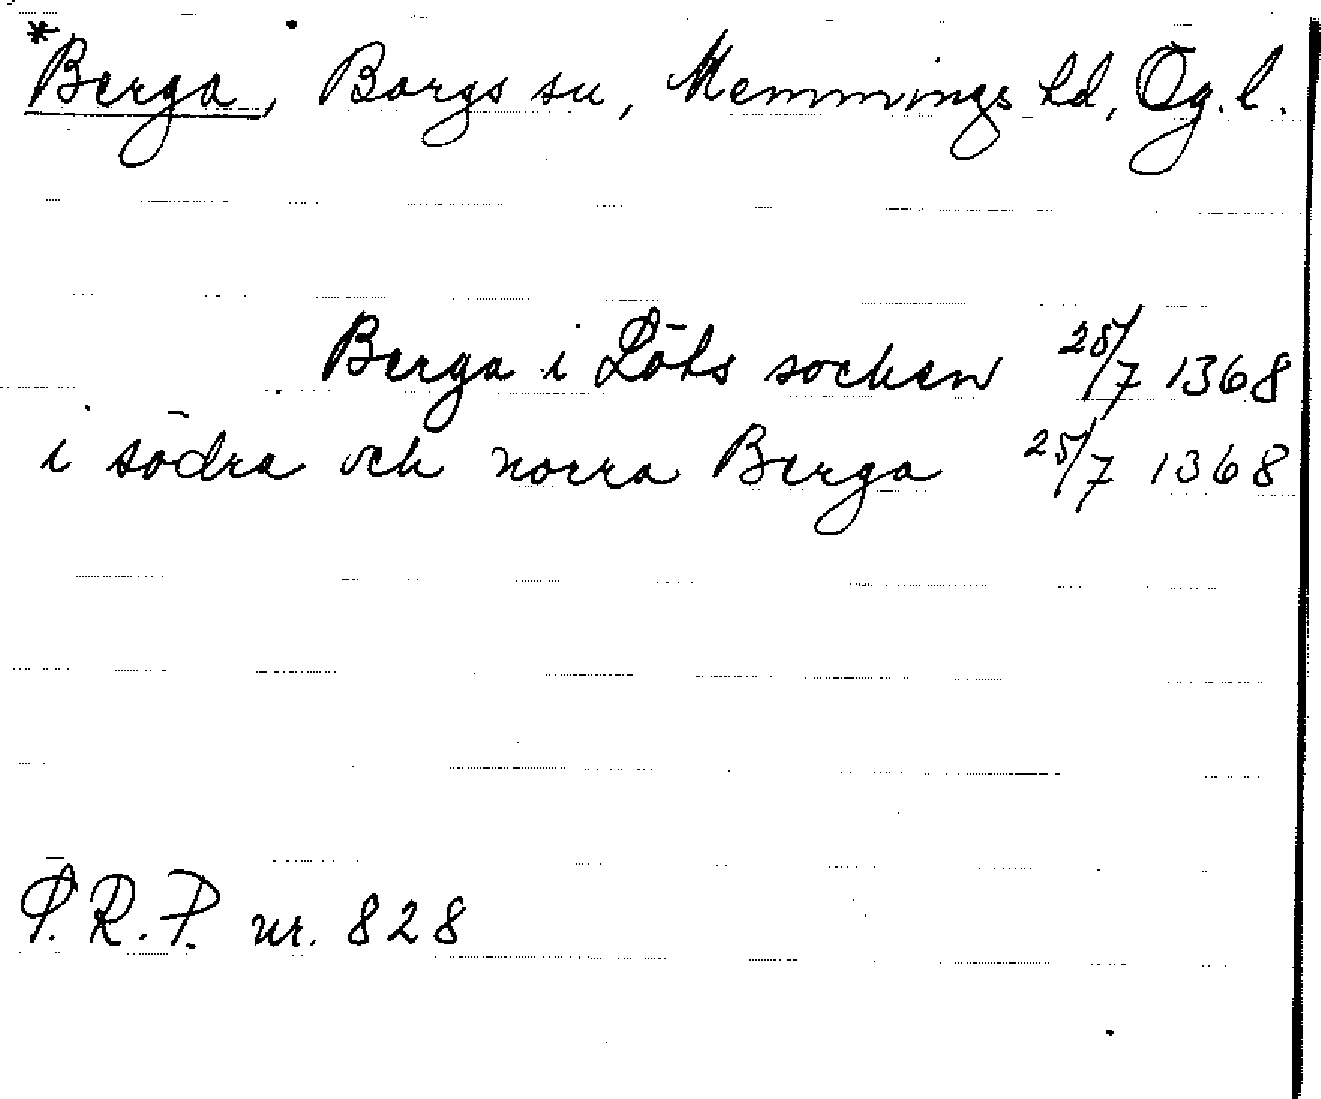 *Berga, Borgs sn, Memmings hd, Ög. l.
Berga i Löts socken 25/7 1368
i södra och norra Berga 25/7 1368
P.R.P. nr. 828